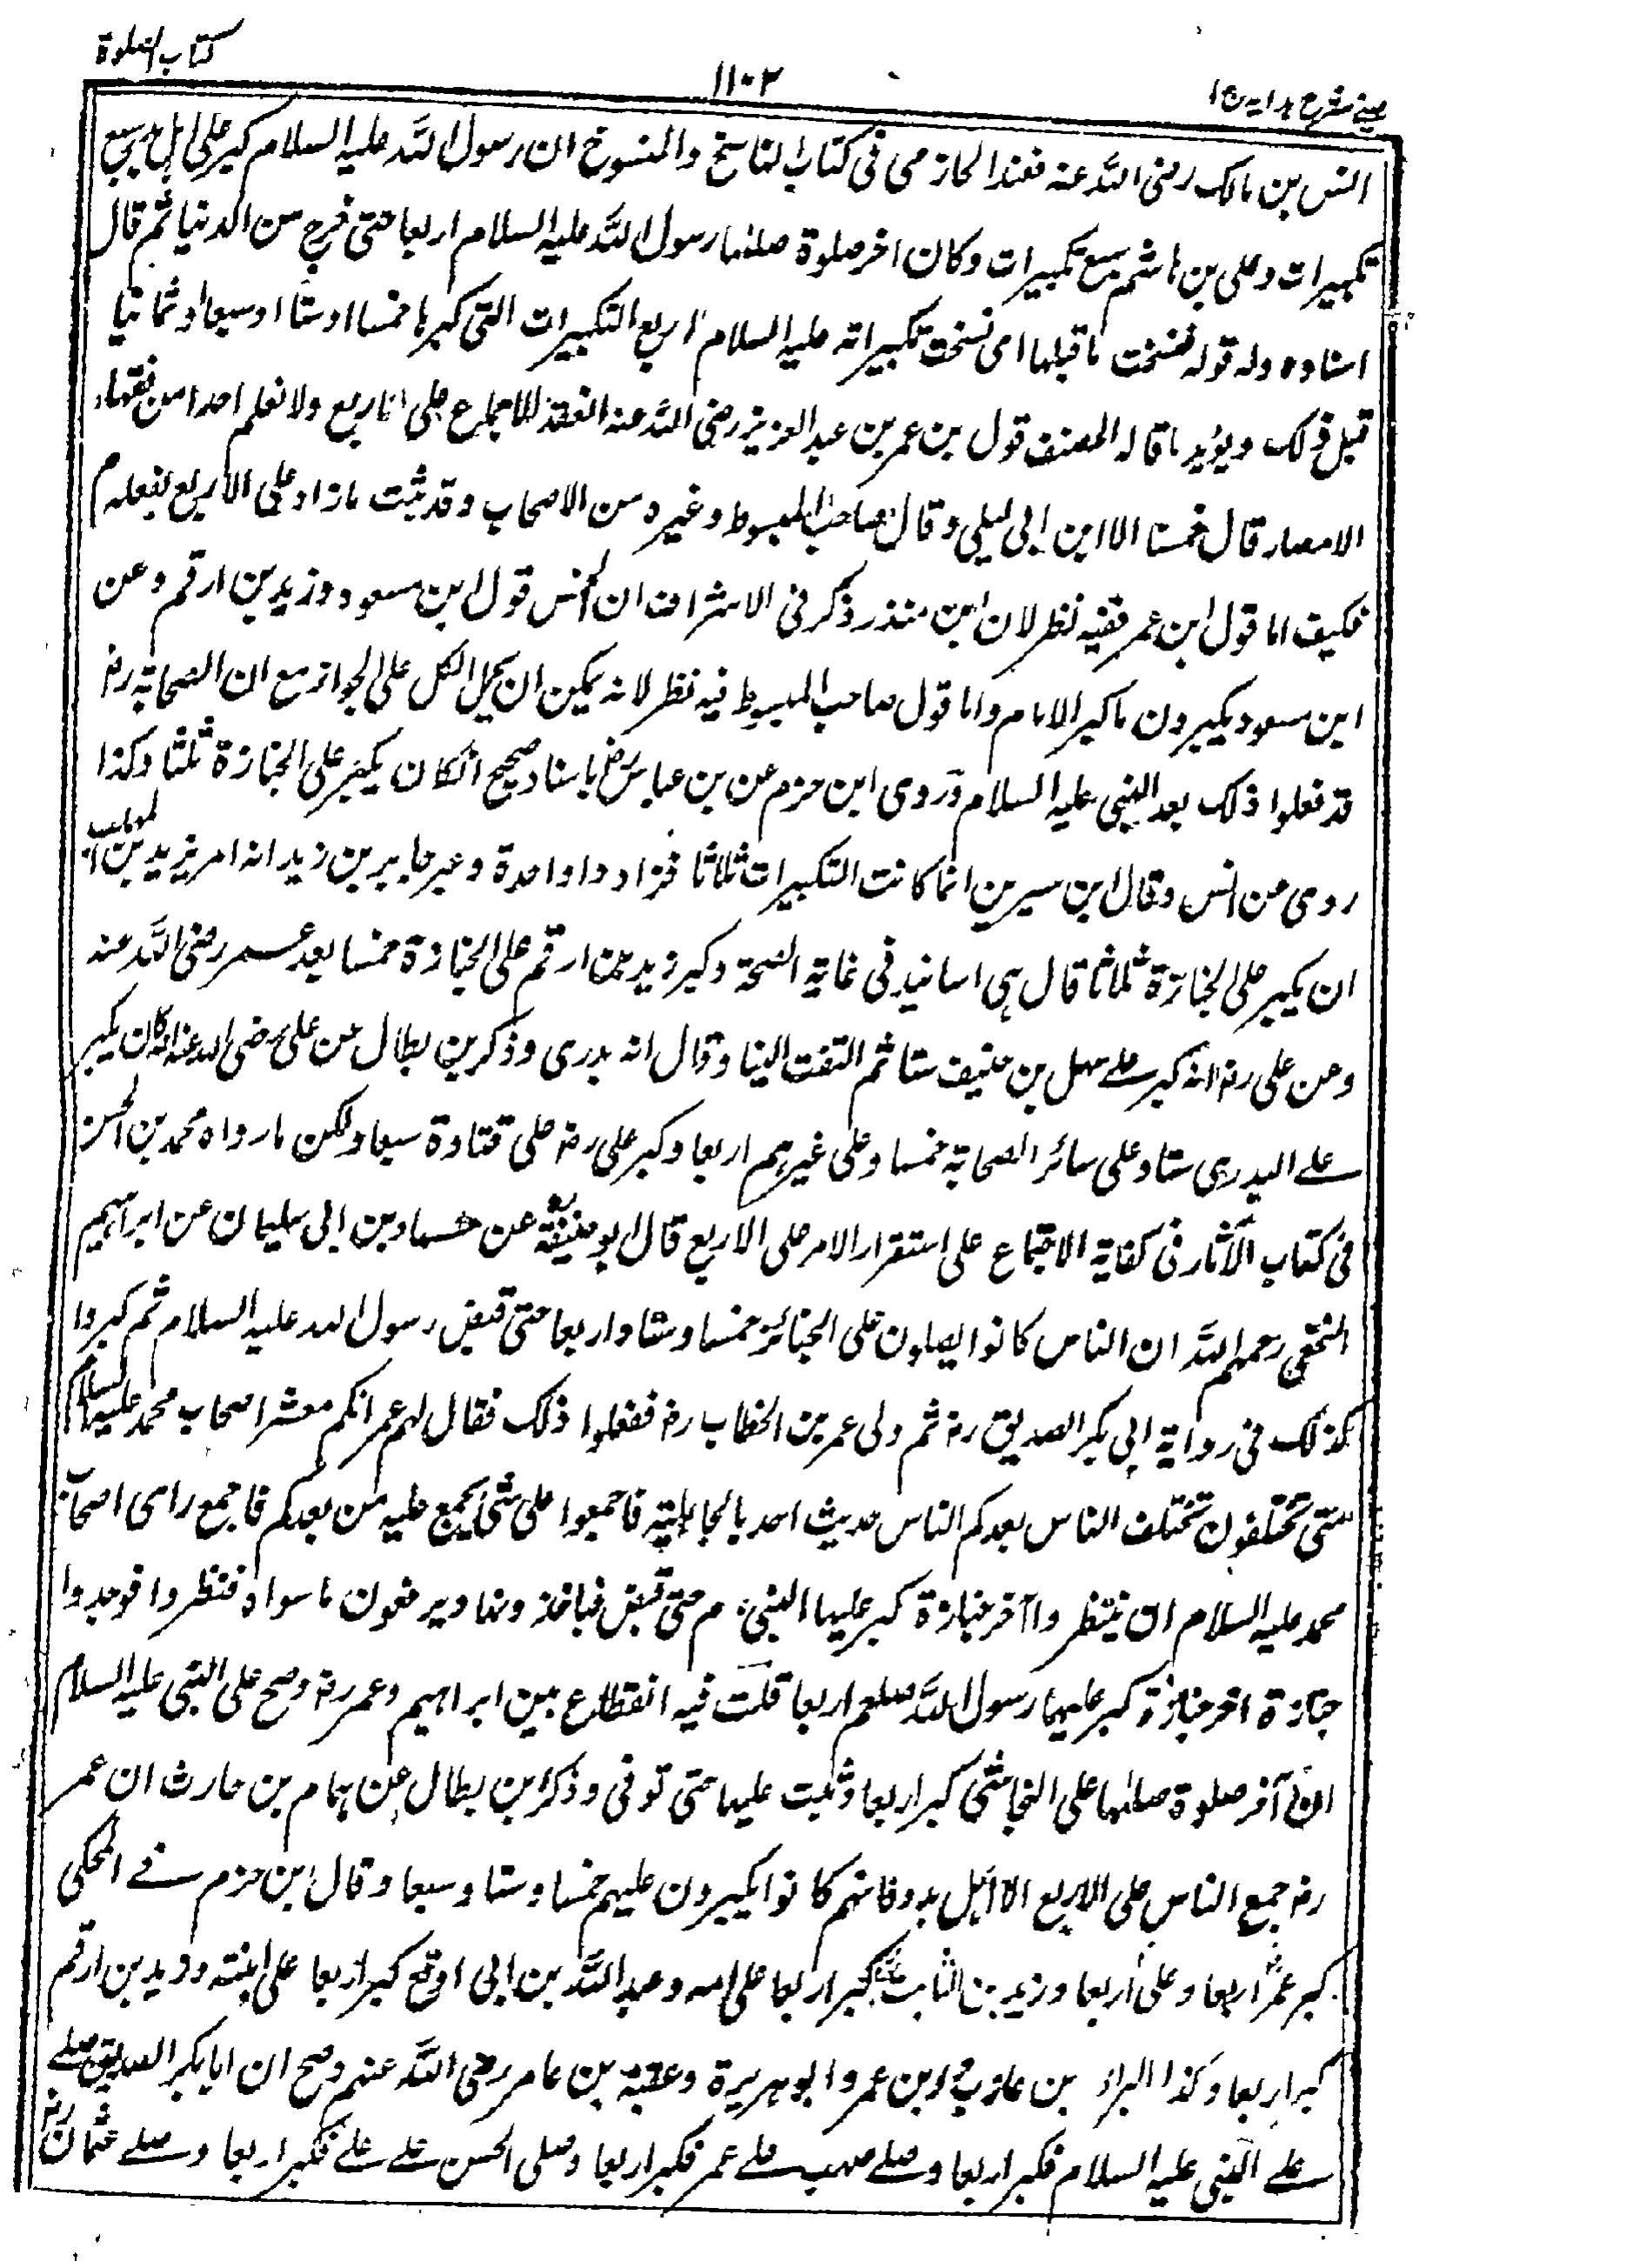 عينى شرح هدايه ج ا
١١٠٢
كتاب الصلوة
انس بن مالك رضى الله عنه فعند الحازمى فى كتاب الناسخ والمنسوخ ان رسول الله عليه السلام كبر على اهل بدر سبع
تكبيرات وعلى بن هاشم سبع تكبيرات وكان اخر صلوة صلاها رسول الله عليه السلام اربعا حتى خرج من الدنيا ثم قال
اسناده وله قوله فنسخت ما قبلها اى نسخت تكبيراته عليه السلام اربع التكبيرات التى كبرها خمسا او ستا او سبعا او ثمانيا
قبل ذلك ويؤيد ما قاله المصنف قول بن عمر بن عبد العزيز رضى الله عنه انعقد الاجماع على اربع ولا نعلم احدا من فقهاء
الامصار قال خمسا الا ابن ابى ليلى وقال صاحب المبسوط وغيره من الاصحاب وقد ثبت ما زاد على الاربع بفعلهم
فكيف اما قول ابن عمر ففيه نظر لان ابن منذر ذكر فى الاشراف ان الخمس قول ابن مسعود وزيد بن ارقم وعن
ابن مسعود يكبرون ما كبر الامام واما قول صاحب المبسوط فيه نظر لانه يمكن ان يحمل الكل على الجواز مع ان الصحابة رضـ
قد فعلوا ذلك بعد النبى عليه السلام وروى ابن حزم عن بن عباس رضـ باسناد صحيح انه كان يكبر على الجنازة ثلثا وكذا
روى عن انس وقال ابن سيرين انما كانت التكبيرات ثلاثا فزادوا واحدة وعن جابر بن زيد انه امر يزيد بن المهلب
ان يكبر على الجنازة ثلاثا قال هى اسانيد فى غاية الصحة وكبر زيد بن ارقم على الجنازة خمسا بعد عمر رضى الله عنه
وعن على رضـ انه كبر على سهل بن حنيف ستا ثم التفت الينا وقال انه بدرى وذكر بن بطال عن على رضى الله عنه انه كان يكبر
على البدرى ستا وعلى سائر الصحابة خمسا وعلى غيرهم اربعا وكبر على رضـ على قتادة سبعا ولكن ما رواه محمد بن الحسن
فى كتاب الآثار فى كفاية الاجتماع على استقرار الامر على الاربع قال ابو حنيفة عن حماد بن ابى سليمان عن ابراهيم
النخعى رحمهم الله ان الناس كانوا يصلون على الجنائز خمسا وستا واربعا حتى قبض رسول الله عليه السلام ثم كبروا
كذلك فى رواية ابى بكر الصديق رضـ ثم ولى عمر بن الخطاب رضـ ففعلوا ذلك فقال لهم عمر انكم معشر اصحاب محمد عليه السلام
متى تختلفون تختلف الناس بعدكم الناس حديث احد بالجاهلية فاجمعوا على شئ يجمع عليه من بعدكم فاجمع راى اصحاب
محمد عليه السلام ان ينتظروا آخر جنازة كبر عليها النبى ءم حتى قبض فياخذونها ويرفعون ما سواه فنظروا فوجدوا
جنازة اخر جنازة كبر عليها رسول الله صلعم اربعا قلت فيه انقطاع بين ابراهيم وعمر رضـ وصح على النبى عليه السلام
ان آخر صلوة صلاها على النجاشى كبر اربعا وثبت عليها حتى توفى وذكر ابن بطال عن همام بن حارث ان عمر
رضـ جمع الناس على الاربع الا اهل بدر فانهم كانوا يكبرون عليهم خمسا وستا وسبعا وقال ابن حزم فى المحلى
كبر عمر اربعا وعلى اربعا وزيد بن الثابت كبر اربعا على امه وعبد الله بن ابى اوفى كبر اربعا على ابنته وزيد بن ارقم
كبر اربعا وكذا البراء بن عازب وابن عمر وابو هريرة وعقبة بن عامر رضى الله عنهم وصح ان ابا بكر الصديق صلى
على النبى عليه السلام فكبر اربعا وصلى صهيب على عمر فكبر اربعا وصلى الحسن على على فكبر اربعا وصلى عثمان رضـ